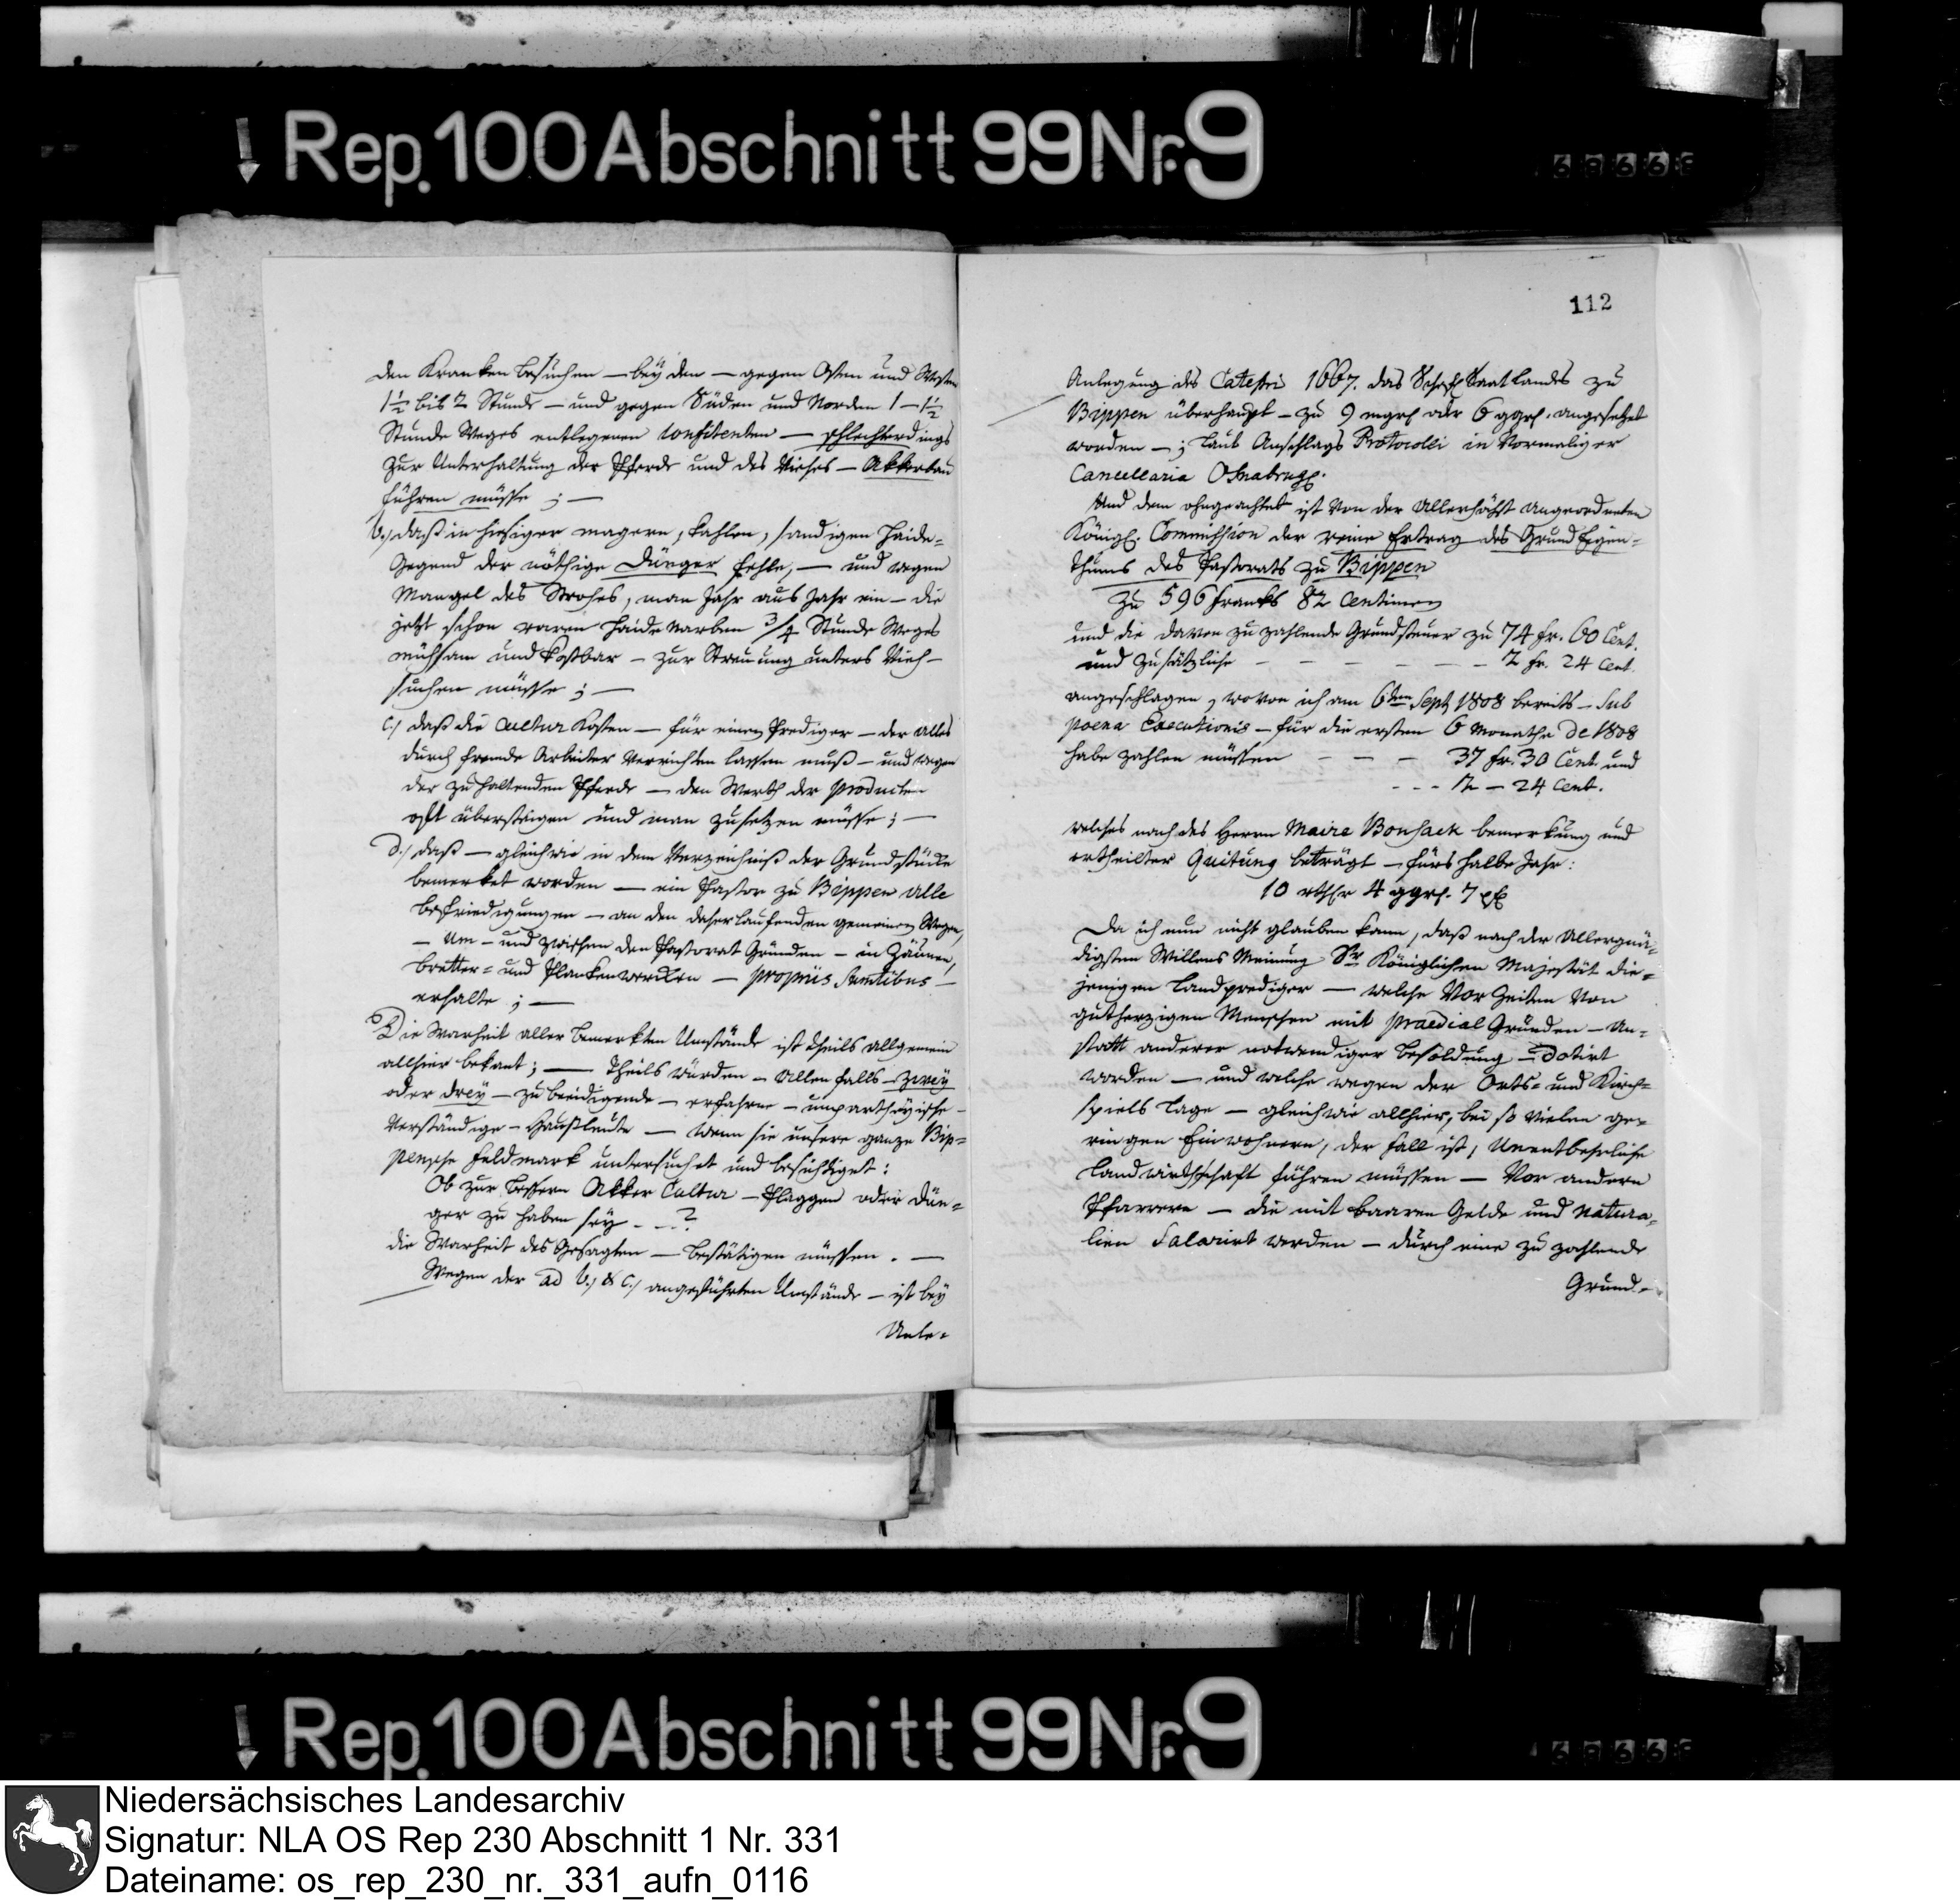 Rep. 100 Abschnitt 99 Nr. 9
den Kranken besuchen — bey den — gegen Osten und Westen
1½ bis 2 Stunde — und gegen Süden und Norden 1 — 1½
Stunde Weges entlegenen Confitenten — schlechterdings
zur Unterhaltung der Pferde und des Viehes — Akkerbau
führen müsse ; —
b.) daß in hiesiger magern, kahlen, sandigen Haide-
Gegend der nöthige Dünger fehle, — und wegen
Mangel des Strohes, man Jahr aus Jahr ein — die
jetzt schon raren Haidenarben 3/4 Stunde Weges
mühsam und kostbar — zur Streuung unters Vieh —
suchen müsse ; —
c.) daß die Cultur Kosten — für einen Prediger — der alles
durch fremde Arbeiter verrichten lassen muß — und wegen
der zu haltenden Pferde — den Werth der Producten
oft übersteigen und man zusetzen müsse ; —
d.) daß — gleichwie in dem Verzeichniß der Grundstücke
bemerket worden — ein Pastor zu Bippen alle
Befriedigungen — an den daherlaufenden gemeinen Wegen,
— um — und zwischen den Pastorat Gründen — in Zäunen,
Bretter= und Plankenwerken — propriis sumtibus —
erhalte ; —
Die Warheit aller bemerkten Umstände ist theils allgemein
allhier bekant ; — theils würden — allenfalls — zwey
oder drey — zu beeidigende — erfahrne — unpartheyische —
verständige — Hausleute — wenn sie unsere ganze Bip=
pensche Feldmark untersuchet und besichtiget :
Ob zur bessern Akker Cultur — Plaggen oder Dün=
ger zu haben sey - - ?
die Warheit des Gesagten — bestätigen müssen . —
Wegen der ad b.) & c.) angeführten Umstände — ist bey
Anle=
112
Anlegung des Catastri 1667. das Schfl Saat Landes zu
Bippen überhaupt — zu 9 mgrl oder 6 ggrl. angesetzet
worden — ; laut Anschlags Protocolli in vormaliger
Cancellaria Osnabrug.
Und dem ohngeachtet ist von der Allerhöchst angeordneten
Königl. Commission der reine Ertrag des Grund Eigen=
thums des Pastorats zu Bippen
zu 596 Franks 82 Centimen
und die davon zu zahlende Grundsteuer zu 74 fr. 60 Cent.
und zusätzliche - - - - - - 2 fr. 24 Cent.
angeschlagen, wovon ich am 6ten Sept 1808 bereits — sub
poena Executionis — für die ersten 6 Monathe de 1808
habe zahlen müssen - - - 37 fr. 30 Cent. und
- - - 2 — 24 Cent.
welches nach des Herrn Maire Bonsack Bemerkung und
ertheilter Quitung beträgt — fürs halbe Jahr :
10 rthlr 4 ggrl. 7 pf
Da ich nun nicht glauben kann, daß nach der Allergnä=
digsten Willens Meinung Sr Königlichen Majestät die=
jenigen Landprediger — welche vor Zeiten von
gutherzigen Menschen mit Praedial Gründen — an=
statt anderer notwendiger Besoldung — dotirt
worden — und welche wegen der Orts= und Kirch=
spiels Lage — gleichwie allhier, bei so vielen ge=
ringen Einwohnern, der Fall ist, unentbehrliche
Landwirthschaft führen müssen — vor andern
Pfarrern — die mit baaren Gelde und Natura=
lien salarirt werden — durch eine zu zahlende
Grund=
Rep. 100 Abschnitt 99 Nr. 9
Niedersächsisches Landesarchiv
Signatur: NLA OS Rep 230 Abschnitt 1 Nr. 331
Dateiname: os_rep_230_nr._331_aufn_0116